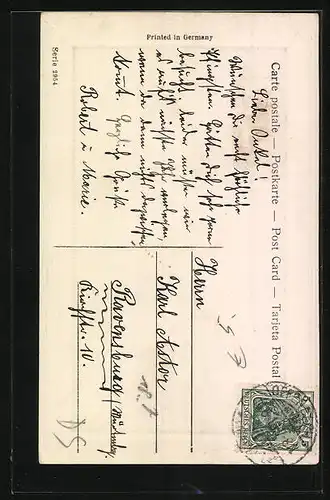 Printed in Germany
Serie 2954
Carte postale — Postkarte — Post Card — Tarjeta Postal
Lieber Onkel!
Wünschen Dir recht fröhliche
Pfingsten. Hätten Dich sehr gern
besucht, leider müssen wir
es aufs nächste Jahr verlegen,
wenn da dann nichts dazwischen
kommt. Herzliche Grüße
Robert u. Marie.
Herrn
Karl
Ravensburg
Kirchstr. 10.
DEUTSCHES REICH